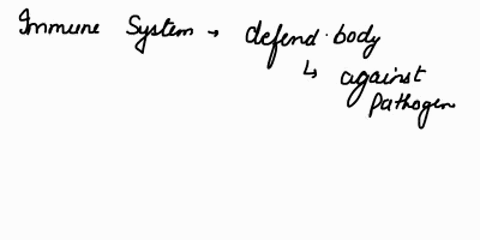 Immune System → defend body
↳ against
Pathogen